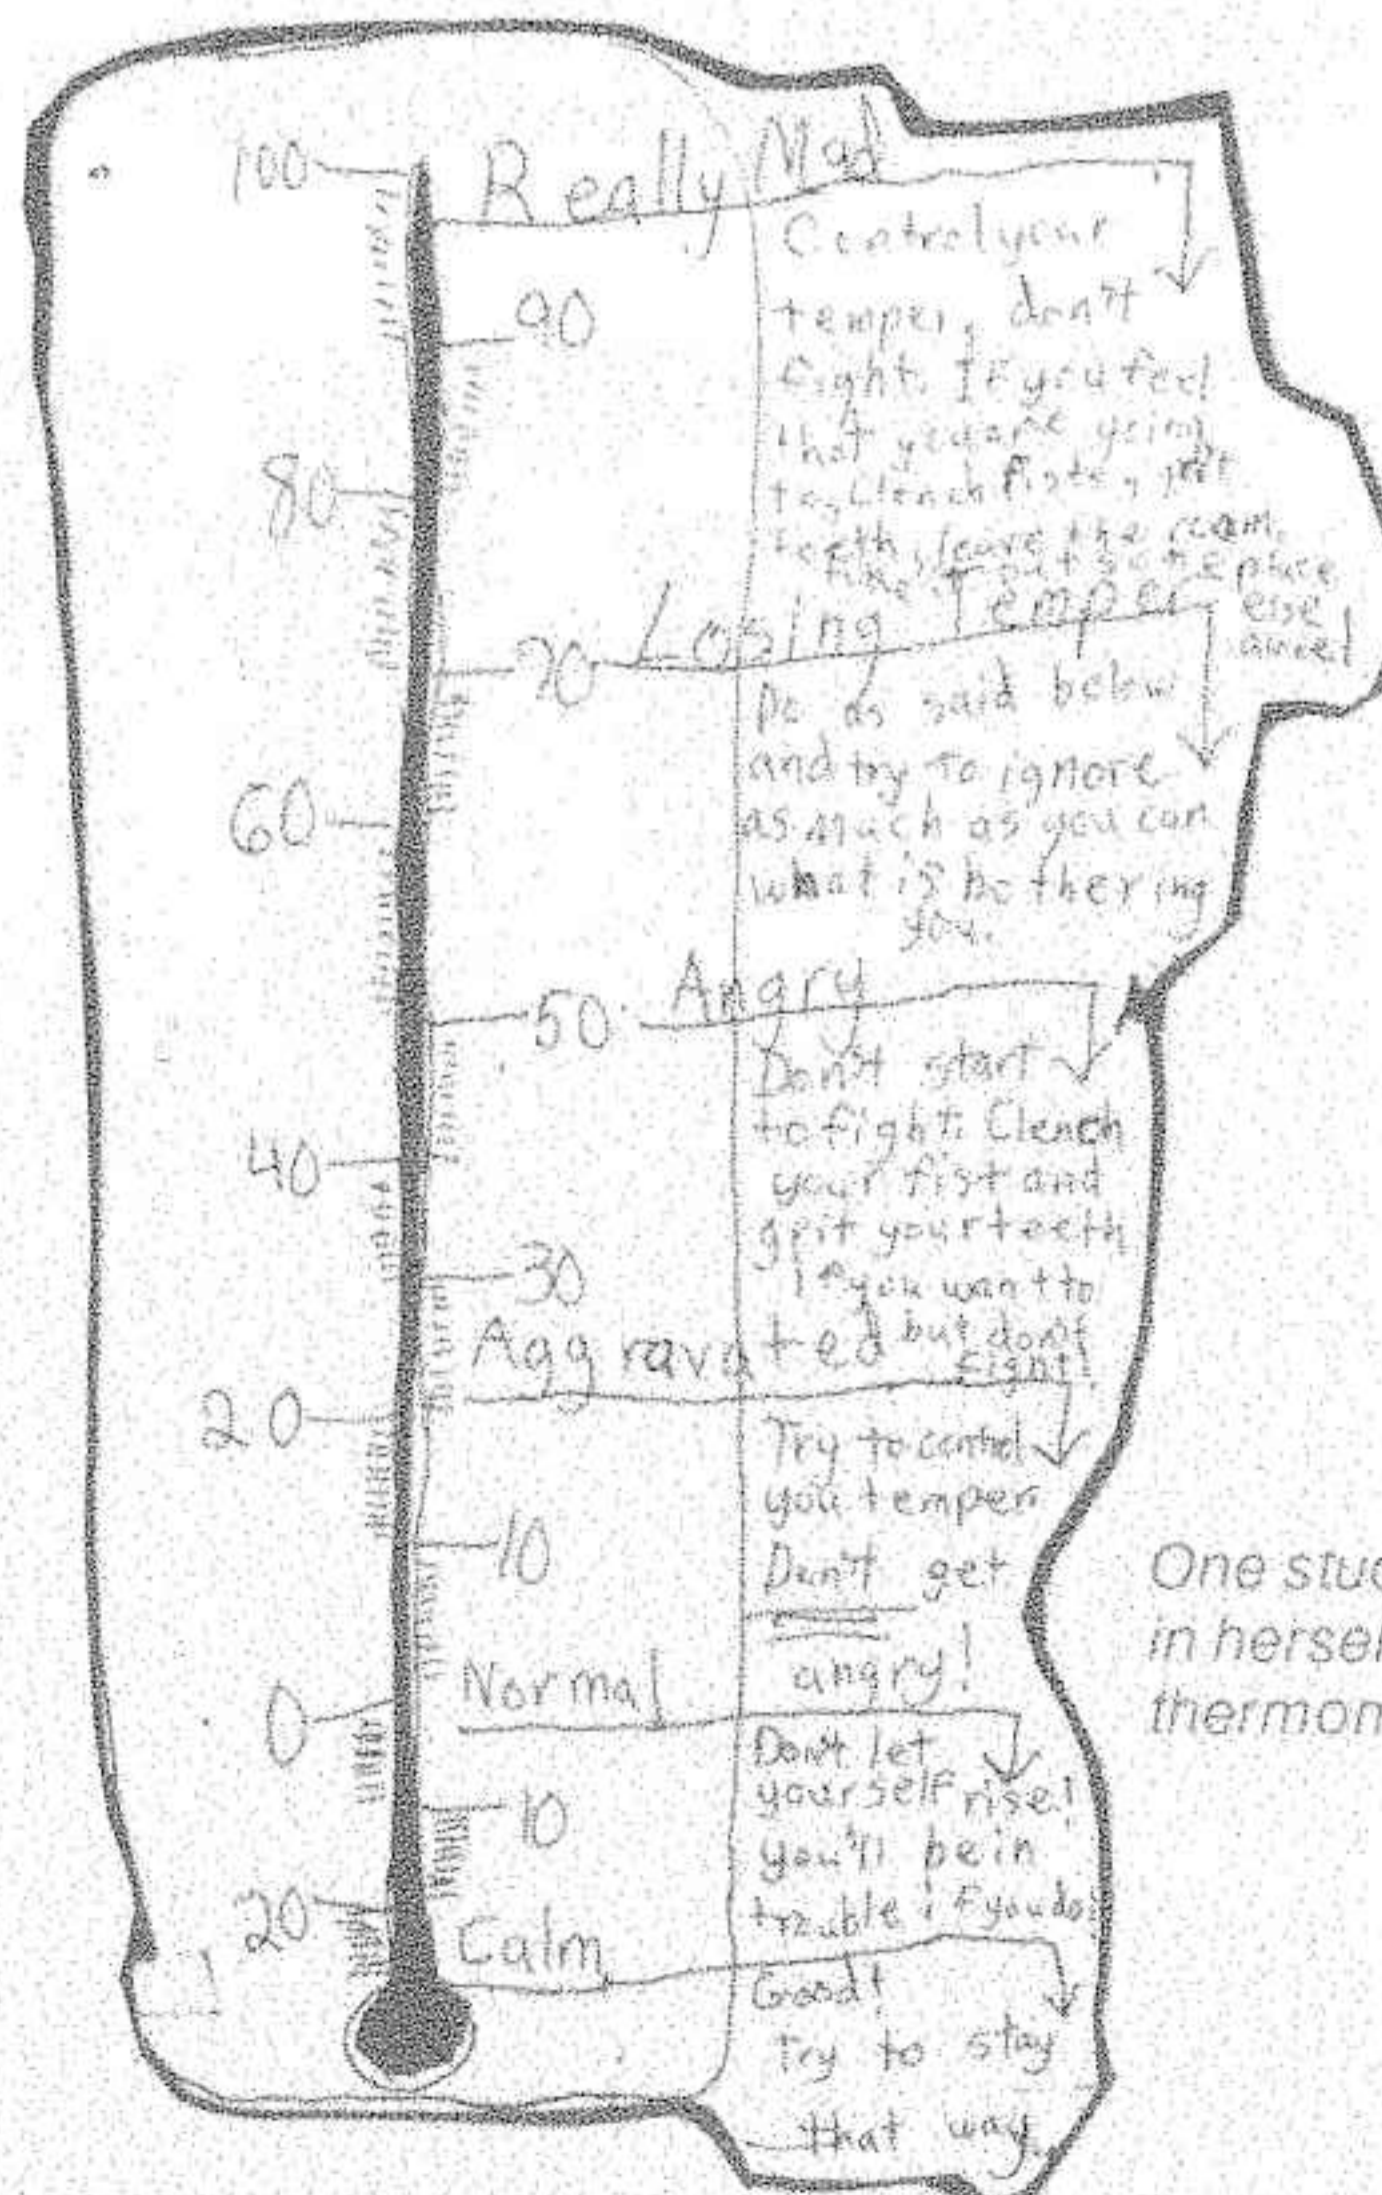 100
Really Mad
Control your
temper, don't
90
fight. If you feel
that you are going
80
to, clench fists, grit
teeth, leave the room.
take it out someplace
else
Losing Temper
70
Do as said below
and try to ignore
60
as much as you can
what is bothering
you.
Angry
50
Don't start
to fight. Clench
40
your fist and
grit your teeth
30
if you want to
but don't
fight!
Aggravated
20
Try to control
you temper.
10
Don't get
angry!
Normal
0
Don't let
yourself rise!
10
you'll be in
trouble if you do!
20
Calm
Good!
Try to stay
that way.
One
in